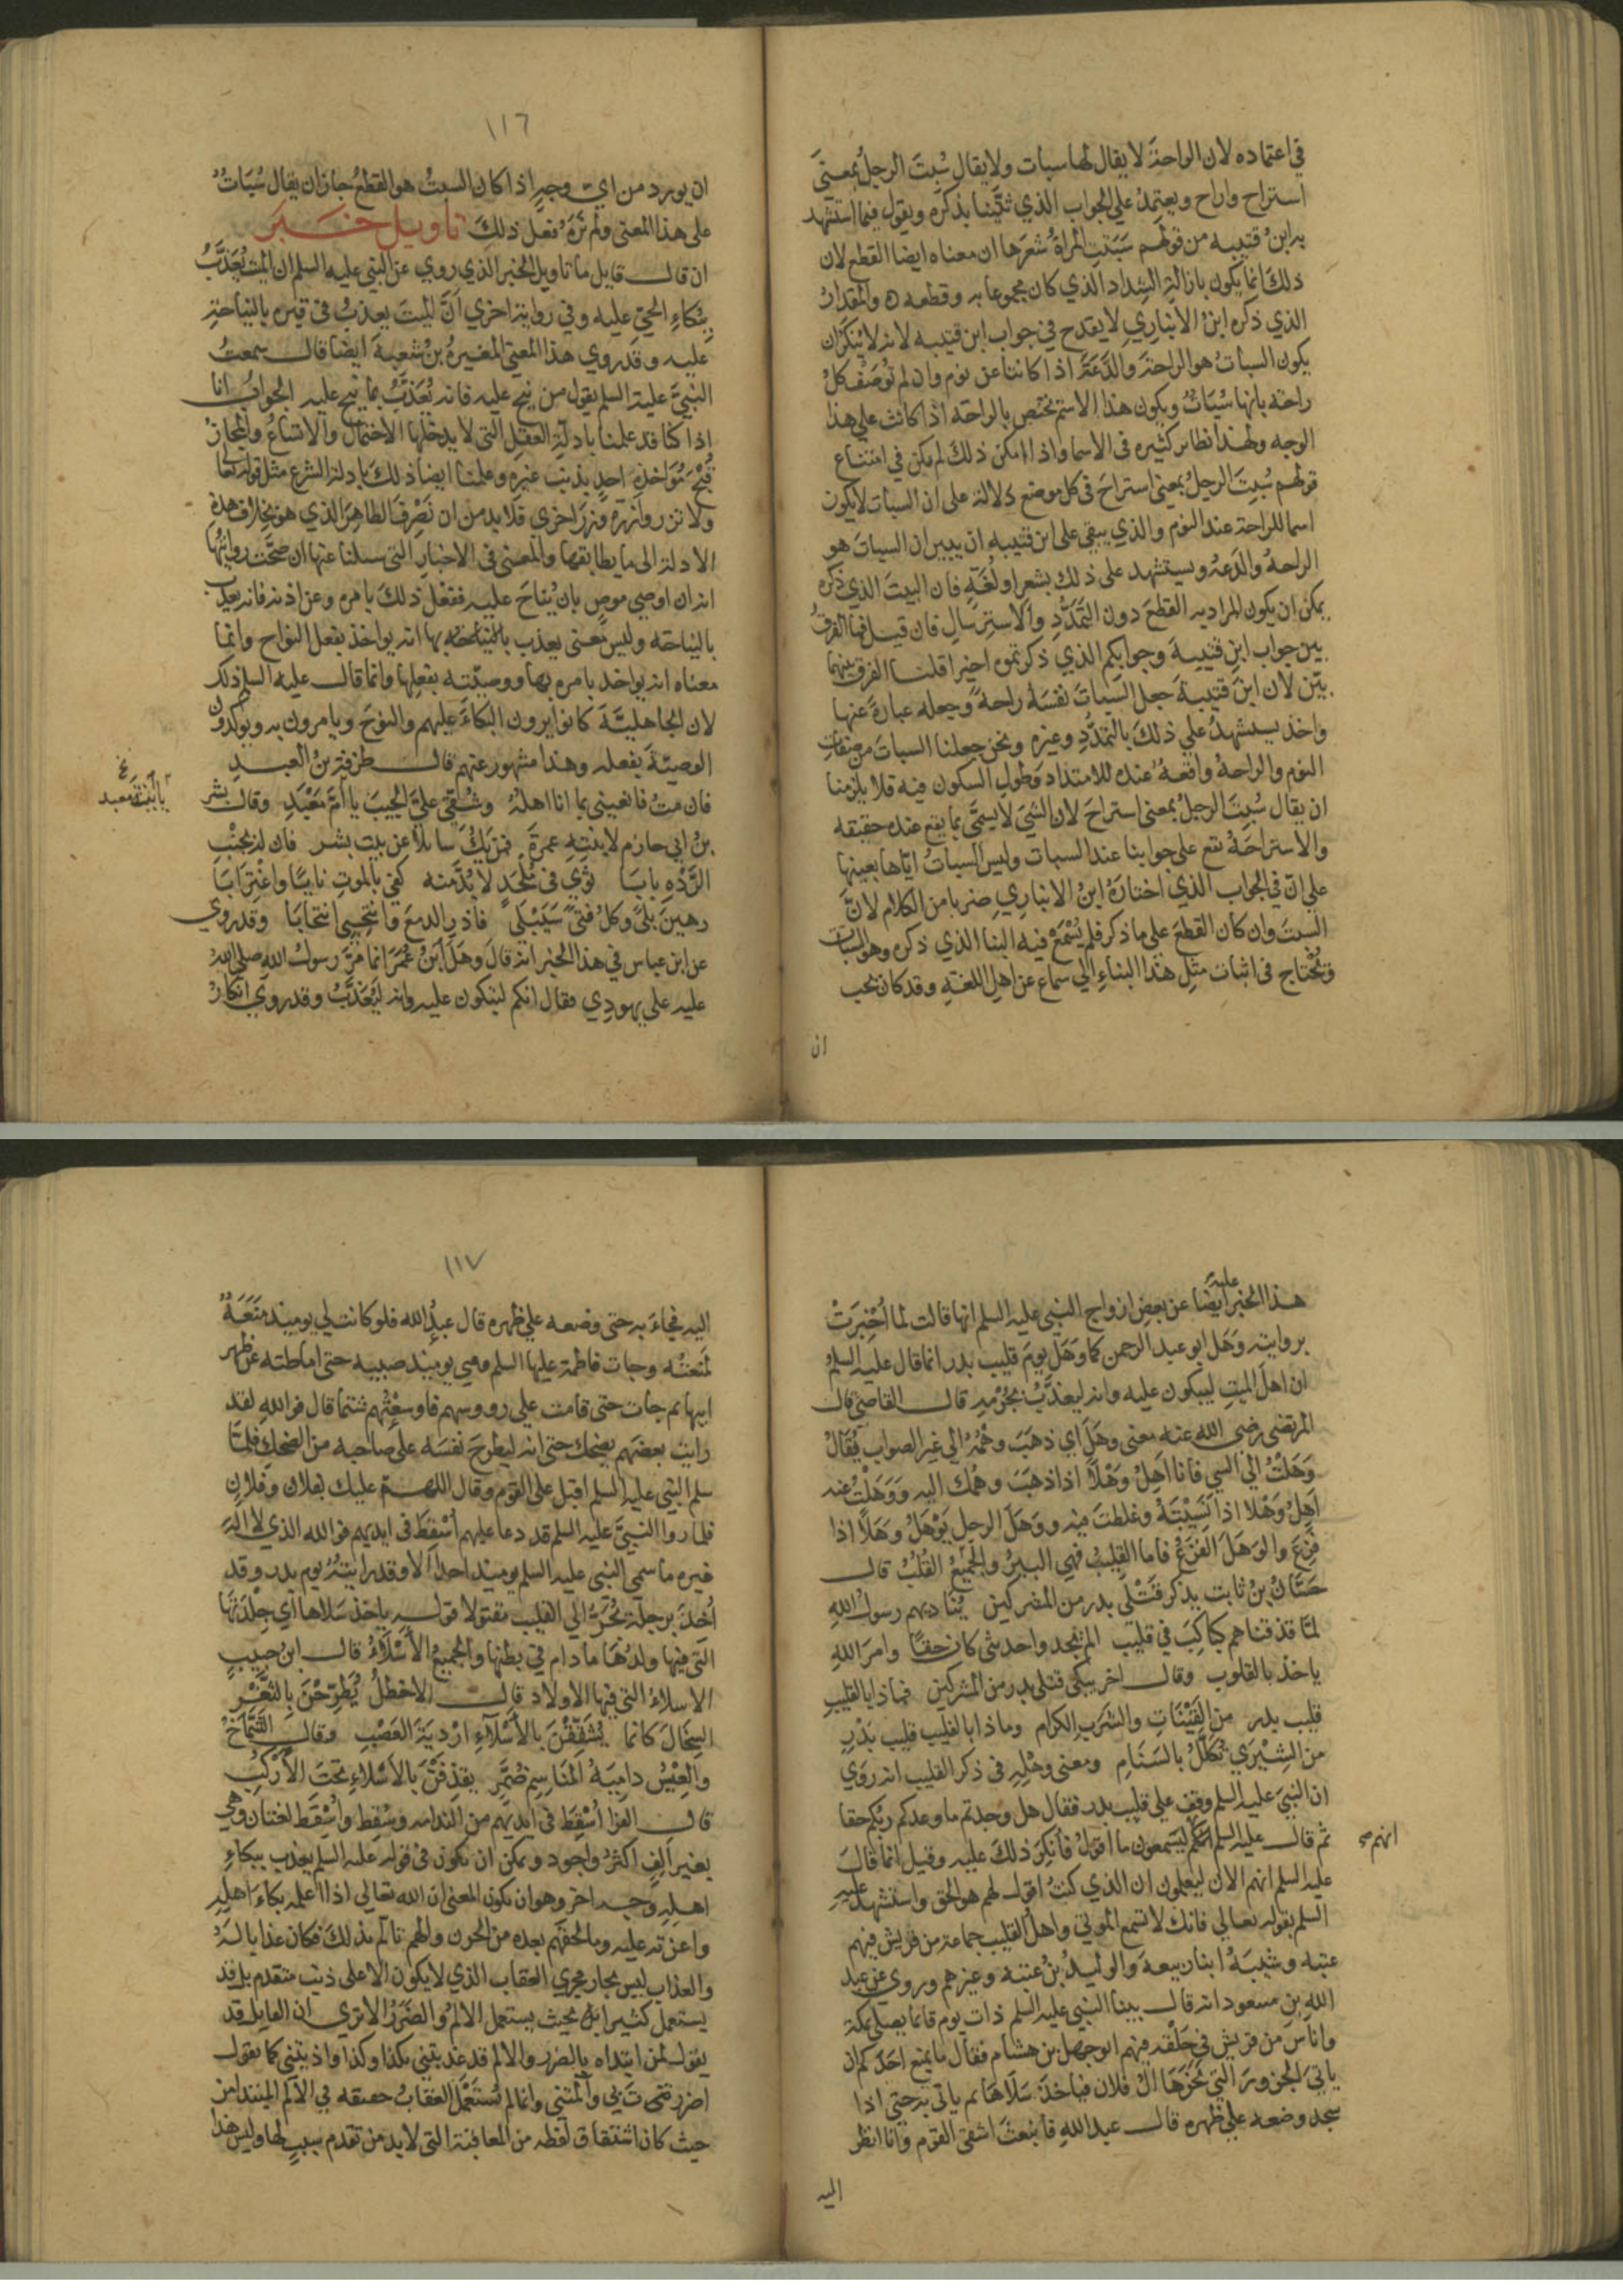 في اعتماده لان الراحة لا يقال لها سبات ولا يقال سُبِتَ الرجلُ بمعنى
استراح واراح ويعتمد علي الجواب الذي ثنّينا بذكره ويقول فيما استشهد
به ابن قتيبه من قولهم سَبَتتِ المراةُ شعرَها ان معناه ايضا القطع لان
ذلك انما يكون بازالة الشداد الذي كان مجموعا به وقطعه ه والمقدار
الذي ذكره ابنُ الانباري لا يقدح في جواب ابن قتيبه لانه لا يُنكَرُ ان
يكون السباتُ هو الراحةَ والدَّعَةَ اذا كانتا عن نوم وان لم تُوصَف كلُ
راحة بانها سُبَاتٌ ويكون هذا الاسم يختص بالراحة اذا كانت علي هذا
الوجه ولهذا نظائر كثيره في الاسما واذا امكن ذلك لم يكن في امتناع
قولهم سُبِتَ الرجلُ بمعنى استراحَ في كل موضع دلالة على ان السبات لا يكون
اسما للراحة عند النوم والذي يبقى على ابن قتيبه ان يبين ان السباتَ هو
الراحةُ والدعةُ ويستشهد على ذلك بشعرٍ او لُغَةٍ فان البيت الذي ذكره
يمكن ان يكون المراد به القطعَ دون التَّمَدُّدِ والاسترسال فان قيل فما الفرقُ
بين جواب ابن قتيبةَ وجوابكم الذي ذكرتموه اخيرا قلنا الفرق بينهما
بيّن لان ابن قتيبةَ جعل السباتَ نفسَهُ راحةً وجعله عبارةً عنها
واخذ يستشهد علي ذلك بالتمدُّدِ وغيره ونحن جعلنا السبات من صفات
النوم والراحةُ واقعةٌ عنده للامتداد وطولِ السكون فيه فلا يلزمنا
ان يقال سُبِتَ الرجلُ بمعنى استراحَ لان الشيَ لا يسمَّى بما يقع عنده حقيقه
والاستراحَةُ تقع على جوابنا عند السبات وليس السباتُ اياها بعينها
على انّ في الجواب الذي اختارَهُ ابنُ الانباري ضربا من الكلام لانّ
السبتَ وان كان القطعَ على ما ذكر فلم يُسْمَعْ فيه البنا الذي ذكره وهو السبات
ويُحْتاج في اثبات مثلِ هذا البناءِ الي سماع عن اهل اللغةِ وقد كان يجب
ان
١١٦
ان يورد من ايّ وجهٍ اذا كان السبتُ هو القطعَ جاز ان يقال سُبَاتٌ
على هذا المعنى ولم نَرَهُ فعل ذلكَ تاويل خبر
ان قال قايل ما تاويل الخبر الذي روي عن النبي عليه السلم ان الميت يُعَذَّبُ
ببُكاءِ الحيّ عليه وفي رواية اخري اَنَّ الميتَ يعذبُ في قبره بالنياحة
عليه وقد روي هذا المعنى المغيرةُ بنُ شعبةَ ايضا قال سمعتُ
النبيَّ عليه السلم يقول من نِيحَ عليه فانه يُعَذَّبُ بما نِيح عليه الجوابُ انا
اذا كنا قد علمنا بادلةِ العقلِ التي لا يدخلها الاحتمالُ والاتساعُ والمجازُ
قُبْحَ مُوَاخذةِ احدٍ بذنب غيره وعلمنا ايضا ذلكَ بادلة الشرع مثل قوله تعالى
ولا تزر وازرة وزر اخرى فلا بد من ان نَصْرِفَ الظاهرَ الذي هو بخلاف هذه
الادلة الى ما يطابقها والمعنى في الاخبار التي سيلنا عنها ان صحَّت روايتُها
انه ان اوصي موصٍ بان يُناحَ عليه ففُعلَ ذلك بامره وعن اذنه فانه يعذب
بالنياحة وليس معنى يعذب بالنياحة بها انه يواخذ بفعل النواح وانما
معناه انه يواخذ بامره بها ووصيّته بفعلها وانما قال عليه السلم ذلك
لان الجاهليَّةَ كانوا يرون البكاءَ عليهم والنوحَ ويامرون به ويوكدون
الوصيّةَ بفعله وهذا مشهور عنهم قال طرفة بنُ العبد
فان متُ فانعيني بما انا اهلُهُ وشُقّي عليَّ الجيبَ يا اُمَّ مَعْبَدِ وقال بشر
يا ابنةَ معبد
بنُ ابي حازم لابنتِهِ عمرةَ فمن يكُ سايلا عن بيت بشر فان له بجنْبِ
الرَّدْهِ بابا ثَوَي في مُلْحَدٍ لا بُدَّ منه كفى بالموتِ نايًا واغْتِرَابَا
رهينَ بلًى وكلُ فتىً سَيَبْلَى فاذرِ الدمعَ وانتَحِبي انتحابَا وقد روي
عن ابن عباس في هذا الخبر انه قال وَهَلَ ابنُ عُمَرَ انما مَرَّ رسولُ الله صلى اللهُ
عليه على يهودِيٍ فقال انكم لتبكون عليه وانه ليُعَذَّبُ وقد روي انكارُ
هذا الخبر ايضا عن بعض ازواج النبي عليه السلم انها قالت لما اُخبِرَتْ
عليه
بروايته وَهَل ابو عبد الرحمن كما وَهَلَ يومَ قليب بدر انما قال عليه السلمُ
ان اهلَ الميتِ ليبكون عليه وانه ليعذَّبُ بجُرْمِه قال القاضي قال
المرتضى رضي الله عنه معنى وهَلَ اي ذهبَ وهْمُهُ الي غير الصواب يُقَالُ
وَهَلْتُ الي الشي فانا اَهِلُ وَهْلاً اذا ذهبَ وهمك اليه وَوَهَلْتُ عنه
اَهِلُ وَهْلا اذا نَسِيْتَهُ وغلطتَ فيه ووَهَلَ الرجل يَوْهَلُ وَهَلاً اذا
فَزِعَ والوَهَلُ الفَزَعُ فاما القليبُ فهي البيرُ والجَمْعُ القُلُبُ قال
حَسَّانُ بنُ ثابت يذكر قَتْلَى بدر من المشركين يُنَاديهم رسولُ اللهِ
لمَّا قذفناهم كباكِبَ في قليب الم تجد واحديثى كان حقًا وامرَ اللهِ
ياخذ بالقلوب وقال اخر يبكى قتلى بدر من المشركين فماذا بالقليبِ
قليب بدر من القَيْنَاتِ والشَرب الكرام وماذا بالقليب قليب بَدْرٍ
من الشِيزَي تُكَلَّلُ بالسَنَامِ ومعنى وَهْلِهِ في ذكر القليب انه رَوَي
ان النبيَ عليه السلم وقف علي قليب بدر فقال هل وجدتم ما وعدكم ربُكم حقا
ثم قال عليه السلم انكم ليَسْمعون ما اقولُ فاُنكِرَ ذلكَ عليه وقيل انما قالَ
انهم
عليه السلم انهم الان ليعلمون ان الذي كنتُ اقول لهم هو الحق واستشهد عليه
السلم بقوله تعالي فانك لا تسمع الموتى واهلُ القليب جماعة من قريش فيهم
عتبه وشيبَةُ ابنا ربيعةَ والوليدُ بنُ عتبة وغيرهم وروي عن عبد
اللهِ بنِ مسعود انه قال بينا النبي عليه السلم ذات يوم قائما يصلي بمكة
واناسٌ من قريش في حَلْقَة فيهم ابو جهل بن هشام فقال ما يمنع احدَكم ان
ياتيَ الجزورَ التي نَحَرَهَا الُ فلان فياخذَ سَلَاهَا ثم ياتي به حتي اذا
سجد وضعه علي ظهره قال عبد اللهِ فانبعثَ اشقى القوم وانا انظر
اليه
١١٧
اليه فجاءَ به حتى وضعه علي ظهره قال عبدُ الله فلو كانت لي يوميذ مَنَعَةٌ
لمنعتُه وجات فاطمة عليها السلم وهي يوميذ صبيه حتى اماطته عن ظهر
ابيها ثم جات حتى قامت علي رووسهم فاوسعْتُهم شتما قال فو اللهِ لقد
رايت بعضَهم يضحك حتى انه ليطرح نفسَه على صاحبه من الضحك فلمَّا
سلم النبي عليه السلم اقبل على القوم وقال اللهم عليك بفلان وفلانٍ
فلما راوا النبيَّ عليه السلم قد دعا عليهم اُسْقِطَ في ايديهم فو الله الذي لا الهَ
غيره ما سمي النبي عليه السلم يوميذ احدا الا وقد رايتُهُ يوم بدر وقد
اُخِذَ برجله يُجَرُّ الي القليب مقتولا قوله ياخذ سَلاها اي جِلْدَتَهَا
التي فيها ولدُهَا ما دام في بطنها والجميعُ الاَسْلَاءُ قال ابنُ حبيب
الاسلاءُ التي فيها الاولاد قال الاخطلُ يُطَرِّحْنَ بالثَّغْرِ
السِخَالَ كانما يُشَقِّقْنَ بالاَسْلَاءِ ارْدِيَةَ العَصْبِ وقال الشَّمّاخُ
والعِيْسُ دامِيَةُ المَنَاسِمِ ضُمَّر يقذِفْنَ بالاسْلاءِ تحتَ الاَرْكُبِ
قال الفرا اُسْقِطَ في ايديهم من الندامه وسُقِط واُسْقِط لغتان وهي
بغير الفٍ اكثرُ واجود ويمكن ان يكون في قوله عليه السلم يعذب ببكاءِ
اهلِهِ وجه اخر وهو ان يكون المعنى ان الله تعالي اذا اعلمه بكاءَ اهلِه
واعزته عليه وما لحقهم بعده من الحزن والهم تالّم بذلك فكان عذابا لهُ
والعذاب ليس بجار مجري العقاب الذي لا يكون الا على ذنب متقدم بل قد
يستعمل كثيرا بل بحيث يستعمل الالمُ والضَرَرُ الا ترى ان القايل قد
يقول لمن ابتداه بالضرر والالم قد عذبتني بكذا وكذا واذيتني كما يقول
اضررتَ بي وآلمتني وانما لم يُستَعْمَل العقابُ حقيقه في الالم المبتدا من
حيث كان اشتقاق لفظه من المعاقبة التي لا بد من تقدم سببٍ لها وليس هذا